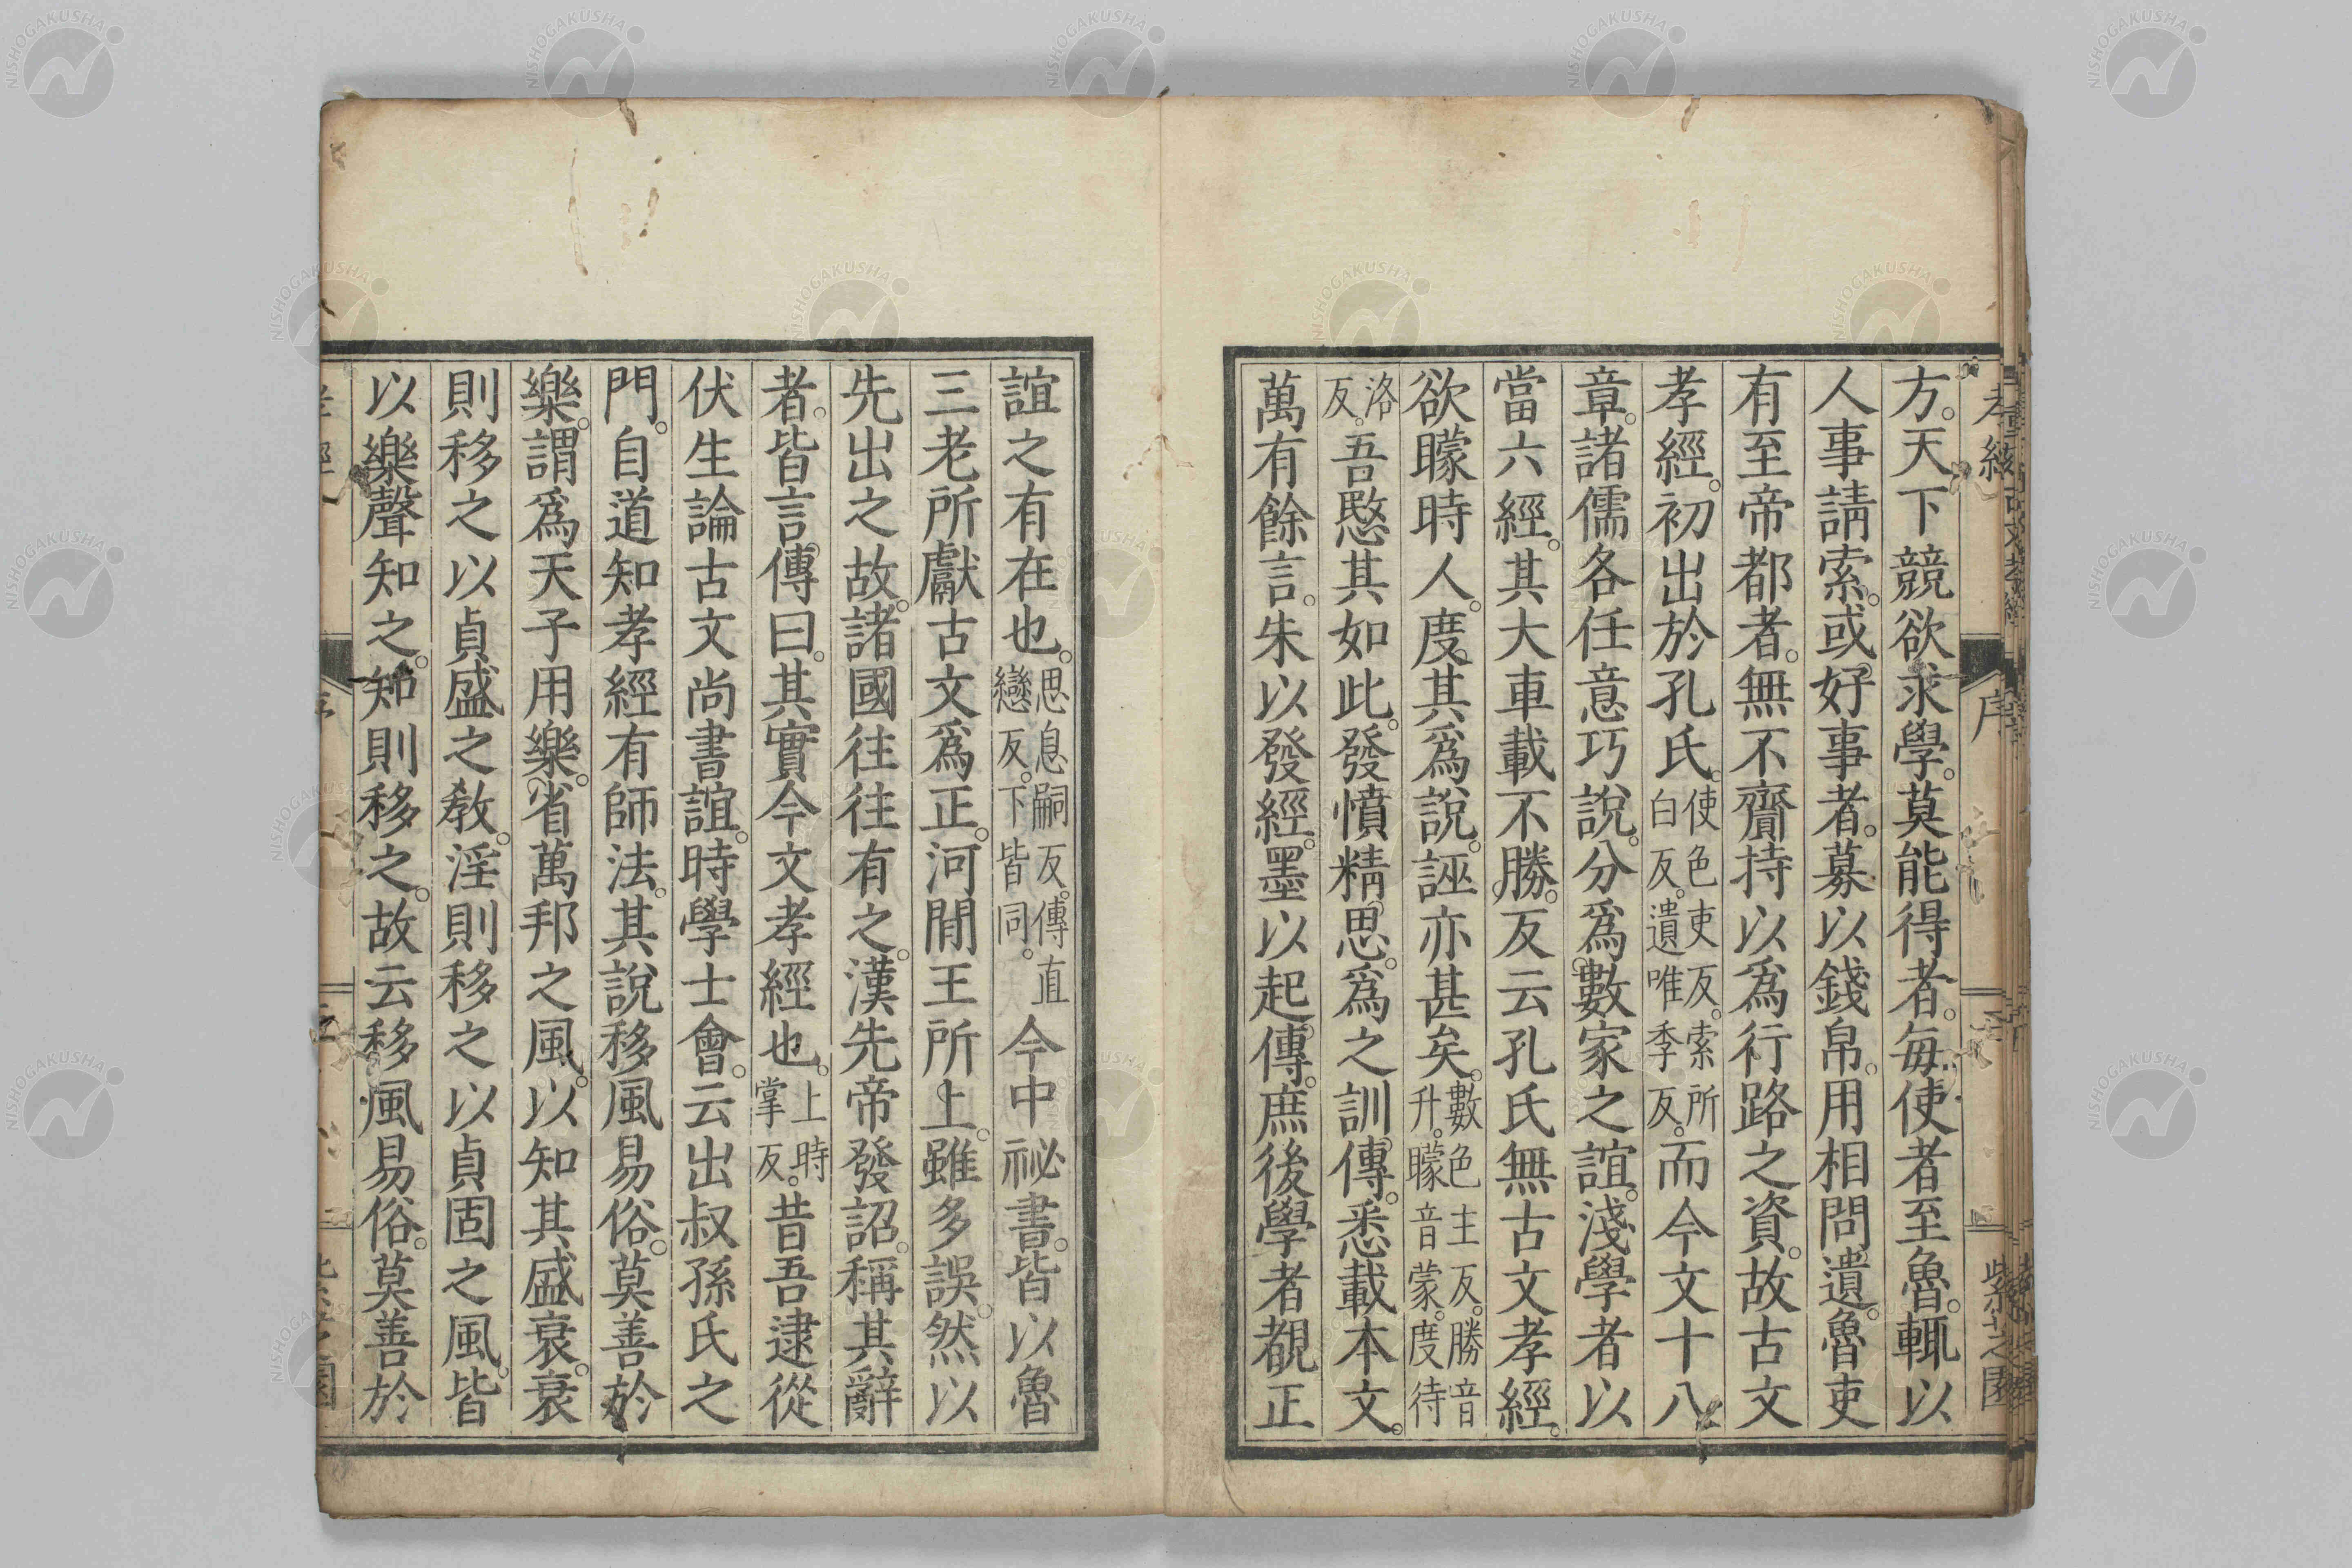 方。天下競欲求學。莫能得者。每使者至魯。輒以
人事請索。或好事者。募以錢帛。用相問遺。魯吏
有至帝都者。無不齎持以爲行路之資。故古文
孝經。初出於孔氏。使色吏反。索所白反。遺唯季反。而今文十八
章。諸儒各任意巧說。分爲數家之誼。淺學者以
當六經。其大車載不勝。反云孔氏無古文孝經。
欲矇時人。度其爲說。誣亦甚矣。數色主反。勝音升。矇音蒙。度待
洛反。吾愍其如此。發憤精思。爲之訓傳。悉載本文。
萬有餘言。朱以發經。墨以起傳。庶後學者覩正
誼之有在也。思息嗣反。傳直戀反。下皆同。今中祕書。皆以魯
三老所獻古文爲正。河間王所上。雖多誤。然以
先出之故。諸國往往有之。漢先帝發詔。稱其辭
者。皆言傳曰。其實今文孝經也。上時掌反。昔吾逮從
伏生論古文尚書誼。時學士會。云出叔孫氏之
門。自道知孝經有師法。其說移風易俗。莫善於
樂。謂爲天子用樂。省萬邦之風。以知其盛衰。衰
則移之以貞盛之教。淫則移之以貞固之風。皆
以樂聲知之。知則移之。故云移風易俗。莫善於
孝經
序
紫芝園
NISHOGAKUSHA